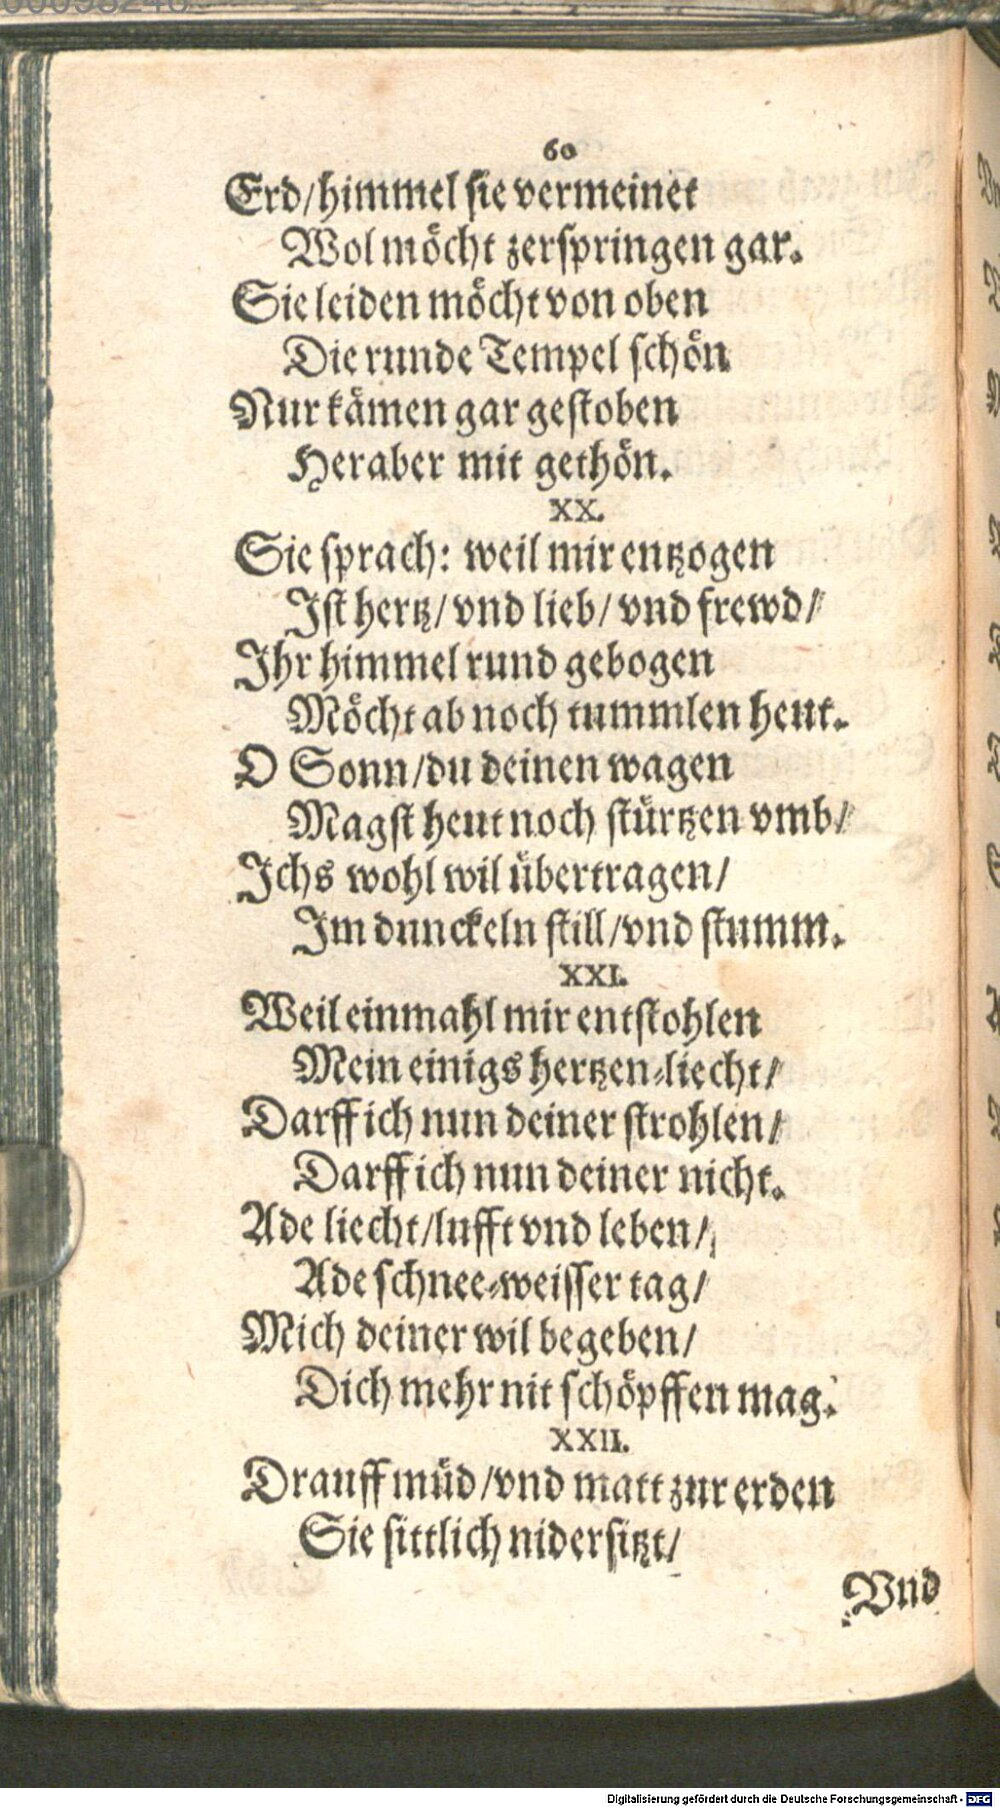 00098246
60
Erd/himmel sie vermeinet
Wol möcht zerspringen gar.
Sie leiden möcht von oben
Die runde Tempel schön
Nur kämen gar gestoben
Heraber mit gethön.
XX.
Sie sprach: weil mir entzogen
Ist hertz/ vnd lieb/ vnd frewd/
Ihr himmel rund gebogen
Möcht ab noch tummlen heut.
O Sonn/du deinen wagen
Magst heut noch stürtzen vmb/
Ichs wohl wil übertragen/
Im dunckeln still/vnd stumm.
XXI.
Weil einmahl mir entstohlen
Mein einigs hertzen-liecht/
Darff ich nun deiner strohlen/
Darff ich nun deiner nicht.
Ade liecht/lufft vnd leben/
Ade schnee-weisser tag/
Mich deiner wil begeben/
Dich mehr nit schöpffen mag.
XXII.
Drauff müd/vnd matt zur erden
Sie sittlich nidersitzt/
Vnd
Digitalisierung gefördert durch die Deutsche Forschungsgemeinschaft - DFG